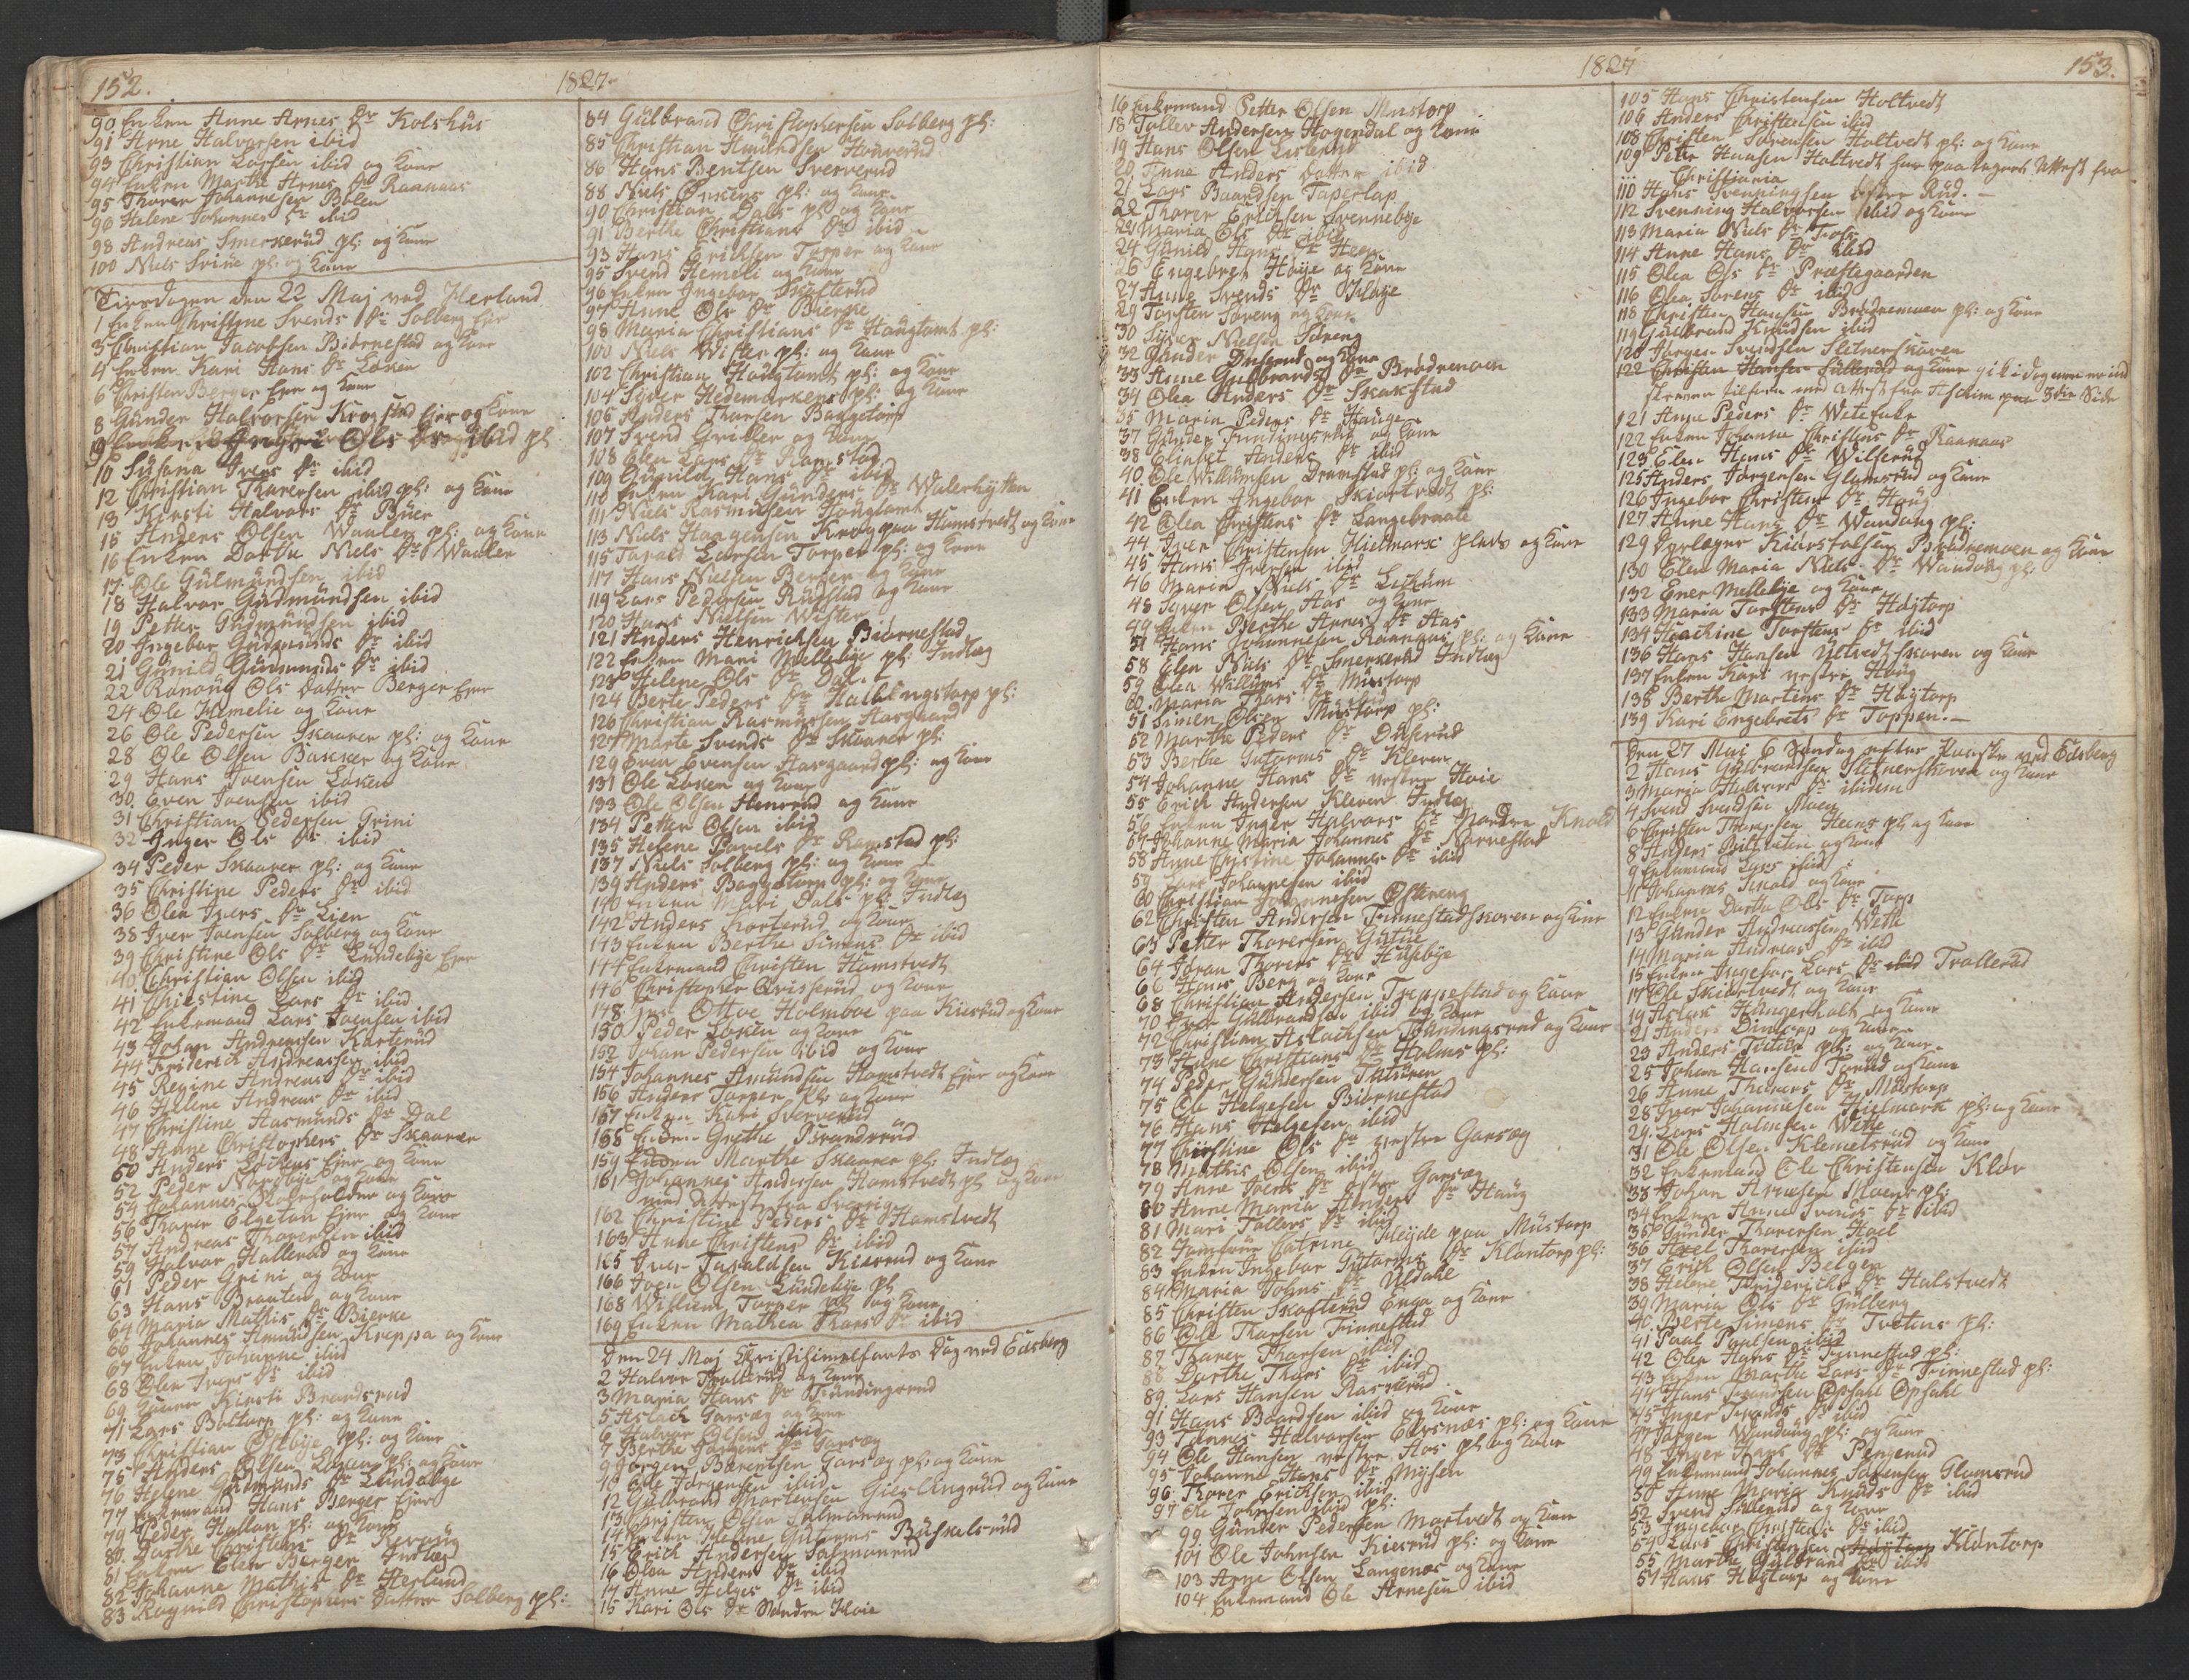 152.
1827.
90 Enken Anne Arnes Dr Kolshus
91 Arne Halvorsen ibid
93 Christian Larsen ibid og Kone
94 Enken Marthe Arnes Dr Raanaas
95 Thorer Johannesen Bølen
96 Helene Johannes Dr ibid
98 Andreas Smerkerud pl: og Kone
100 Niels Sviue pl: og Kone
Tirsdagen den 22 Maj ved Herland
1 Enken Christine Svends Dr Solberg Eier
3 Christian Jacobsen Biørnestad og Kone
4 Enken Kari Hans Dr Løken
6 Christen Berger Eier og Kone
8 Gunder Halvorsen Krogstad Eier og Kone
10 Susana Ivers Dr ibid
12 Christian Thorersen ibid pl: og Kone
13 Kirsti Halvors Dr Buer
15 Anders Olsen Waaler pl: og Kone
16 Enken Dorthe Niels Dr Waaler
17 Ole Gulmundsen ibid
18 Halvor Gudmundsen ibid
19 Petter Gudmundsen ibid
20 Ingebor Gudmunds Dr ibid
21 Gunild Gudmunds Dr ibid
22 Ranaug Ols Datter Berger Eier
24 Ole Hemelie og Kone
26 Ole Pedersen Skaarer pl: og Kone
28 Ole Olsen Bakker og Kone
29 Hans Ivensen Løken
30. Even Ivensen ibid
31 Christian Pedersen Grini
32 Inger Ols Dr ibid
34 Peder Skaarer pl: og Kone
35 Christine Peders Dr ibid
36 Olea Ivers Dr Lien
38 Iver Ivensen Solberg og Kone
39 Christine Ols Dr Lundebye Eier
40 Christian Olsen ibid
41 Christine Lars Dr ibid
42 Enkemand Lars Ivensen ibid
43 Johan Andreassen Korterud
44 Friderich Andreassen ibid
45 Regine Andreas Dr ibid
46 Helene Andreas Dr ibid
47 Christine Aasmunds Dr Dal
48 Anne Christophers Dr Skaarer
50 Anders Løkens Eier og Kone
52 Peder Nordbye og Kone
54 Johannes og Kone
56 Thorer Elgetun Eier og Kone
57 Andreas Thorersen ibid
59 Halvor Hallerud og Kone
61 Peder Grini og Kone
63 Hans Braaten og Kone
64 Maria Mathis Dr Bierke
66 Johannes Amundsen Kroppa og Kone
67 Enken Johanne ibid
68 Olea Ivers Dr ibid
69 Kirsti Brandsrud
71 Lars Boltorp pl: og Kone
73 Christian Østbye pl: og Kone
75 Anders Olsen Løken pl: og Kone
76 Helene Gulmunds Dr Lundebye
77 Enkemand Hans Berger Eier
79 Peder Hollan pl: og Kone
80. Dorthe Christians Dr
81 Enken Elen Berger Indlæg
82 Johanne Mathis Dr Herland
83 Ragnild Christophers Datter Solberg pl:
84 Gulbrand Christophersen Solberg pl:
85 Christian Amundsen Houverud
86 Hans Bentsen Sververud
88 Niels Ørkens pl: og Kone
90 Christian Dals pl: og Kone
91 Berthe Christians Dr ibid
93 Hans Erichsen Torper og Kone
95 Svend Hemeli og Kone
96 Enken Ingebor Skofterud
97 Anne Ols Dr Bierke
98 Maria Christians Dr Haugtomt pl:
100 Niels Wister pl: og Kone
102 Christian Haugtomt pl: og Kone
104 Syver Hedemarkens pl: og Kone
106 Anders Thorsen Baggetorp
107 Svend Griller og Kone
108 Elen Lars Dr Ramstad
109 Gunild Hans Dr ibid
110 Enken Kari Gunders Dr Walerhytten
111 Niels Rasmusen Haugtomt
113 Niels Haagensen Krog paa Hamstvedt og Kone
115 Tarald Larsen Torper pl: og Kone
117 Hans Nielsen Berger og Kone
119 Lars Pedersen Rudstad og Kone
120 Hans Nielsen Wister
121 Anders Henrichsen Biørnestad
122 Enken Mari Mellebye pl: Indlæg
123 Helene Ols Dr Dal.
124 Berte Peders Dr Hallingstorp pl:
126 Christian Rasmussen Aasgaard
127 Marte Svends Dr Skaarer pl:
129 Even Evensen Aasgaard pl: og Kone
131 Ole Løken og Kone
133 Ole Olsen Henrerud og Kone
134 Petter Olsen ibid
135 Helene Povels Dr Ramstad pl:
137 Niels Solberg pl: og Kone
139 Anders Baggetorp pl: og Kone
140 Enken Mari Dals pl: Indlæg
142 Anders Korterud og Kone
143 Enken Berthe Simens Dr ibid
144 Enkemand Christen Hamstvedt
146 Christopher Qvisserud og Kone
148 Otto Holmboe paa Kiserud og Kone
150 Peder Løken og Kone
152 Johan Pedersen ibid og Kone
154 Johannes Amundsen Hamstvedt Eier og Kone
156 Anders Torper Kl: og Kone
157 Enken Kari Sververud
158 Enken Grethe Brandsrud
159 Enken Marthe Skaarer pl: Indlæg
161 Johannes Andersen Hamstvedt pl: og Kone
med Attest fra Sverrig
162 Christine Peders Dr Hamstvedt
163 Anne Christens Dr ibid
165 Iver Taraldsen Kiserud og Kone
166 Joen Olsen Lundebye pl
168 Willum Torper pl: og Kone
169 Enken Mathea Thors Dr ibid
Den 24 Maj Christihimelfarts Dag ved Edsberg
2 Halvor Trollerud og Kone
3 Maria Hans Dr Frundingsrud
5 Aslach Garsæg og Kone
6 Halvor Olsen ibid
7 Berthe Jørgens Dr Garsæg
9 Jørgen Bærentsen Garsæg pl: og Kone
10 Ole Jørgensen ibid
12 Gulbrand Mortensen og Kone
13 Christen Olsen Salmonrud
14 Enken Helene Gutorms Buskelsrud
15 Erich Andersen Salmonrud
16 Olea Anders Dr ibid
17 Anne Helges Dr ibid
15 Kari Ols Dr Søndre Hoie
1827
153.
16 Enkemand Petter Olsen Mustorp
18 Tollev Andersen Hogendal og Kone
19 Hans Olsen Listerud
20 Anne Anders Datter ibid.
21 Lars Baardsen Taperlap
22 Thorer Erichsen Svennebye
23 Maria Ols Dr ibid
24 Gunild Hans Dr Heen
26 Engebret Høije og Kone
27 Anne Svends Dr Volbye
29 Torsten Søreng og Kone
30 Syver Nielsen Søreng
32 Gunder Duserud og Kone
33 Anne Gulbrands Dr Brødremoen
34 Olea Anders Dr Skakstad
35 Maria Peders Dr Hauger
37 Gunder Fundingsrud og Kone
38 Elisbet Anders Dr ibid
40 Ole Willumsen Dramstad pl: og Kone
41 Enken Ingebor Skiørtvedt pl:
42 Olea Christens Dr Langebraate
44 Iver Christensen Hielmark plads og Kone
45 Hans Iversen ibid
46 Maria Niels Dr Lekum
48 Syver Olsen Aas og Kone
49 Enken Berthe Arnes Dr Aas
51 Hans Johannesen Raanaas pl: og Kone
58 Elen Niels Dr Smerkerud Indlæg
59 Olea Willums Dr Mustorp
60. Maria Thors Dr ibid
51 Simen Olsen Mustorp pl:
52 Marthe Peders Dr Duserud
53 Berthe Gutorms Dr Kleven
54 Johanne Hans Dr vestre Hoie
55 Erich Andersen Kleven Indlæg
56 Enken Inger Halvors Dr Nordre Knold
57 Johanne Maria Johannes Dr Narvestad
58 Anne Christine Johannes Dr ibid
59 Lars Johannesen ibid
60 Christian Johannesen Østereng
62 Christen Andersen Tinnestadskoven og Kone
63 Petter Thorersen Gutue
64 Jøran Thorers Dr Huljebye
66 Hans Berg og Kone
68 Christian Andersen Treppestad og Kone
70 Iver Gulbrandsen ibid og Kone
72 Christian Aslachsen Frundingsrud og Kone
73 Anne Christians Dr Holms pl:
74 Peder Gundersen Tuturen
75 Ole Helgesen Biørnestad
76 Hans Helgesen ibid
77 Christine Ols Dr vestre Garsæg
78 Mathis Olsen ibid
79 Anne Joens Dr østre Garsæg
80 Anne Maria Anders Dr Haug
81 Mari Tollevs Dr ibid
82 Jomfrue Catrine Heyde paa Mustorp
83 Enken Ingebor Gutorms Dr Klontorp pl:
84 Maria Johns Dr Uldahl
85 Christen Skofterud Enga og Kone
86 Ole Thorsen Finnestad
87 Thorer Thorsen ibid
88 Dorthe Thors Dr ibid
89. Lars Hansen Raskerud
91 Hans Baardsen ibid og Kone
93 Tønnes Halvorsen Edsnæs pl: og Kone
94 Ole Hansen vestre Aas pl: og Kone
95 Johanne Hans Dr Mysen
96 Thorer Erichsen ibid
97 Ole Johnsen ibid pl:
99 Gunder Pedersen Mostvedt og Kone
101 Ole Johnsen Kieserud pl: og Kone
103 Arne Olsen Langenæs og Kone
104 Enkemand Ole Arnesen ibid
105 Hans Christensen Holtvedt
106 Anders Christensen ibid
108 Christen Sørensen Holtvedt pl: og Kone
109 Petter Hansen Holtvedt paa Attest fra
Christiania
110 Hans Svenningsen østre Rud.
112 Svenning Halvorsen ibid og Kone
113 Maria Niels Dr Tosle
114 Anne Hans Dr ibid
115 Olea Ols Dr Præstegaarden
116 Olea Sørens Dr ibid
118 Christen Hansen Brødremoen pl: og Kone
119 Gulbrand Knudsen ibid
120 Jørgen Svendsen Slitnerskoven
122 Christen Hansen Sulterud og Kone gik i Dag
skrevne tilforn med Attest fra Askim paa 3die Side
121 Anne Peders Dr Wetefuke
122 Enken Johanne Christens Dr Raanaas
123 Elen Hans Dr Wilserud
125 Anders Jørgensen Glamsrud og Kone
126 Ingebor Christens Dr Haug
127 Anne Hans Dr Wandung pl:
129 Brødremoen og Kone
130 Elen Maria Niels Dr Wandung pl:
132 Ener Mellebye og Kone
133 Maria Torstens Dr Høytorp
134 Hoachine Torstens Dr ibid
136 Hans Hansen Ultvedtskoven og Kone
137 Enken Kari vestre Haug
138 Berthe Martins Dr Høytorp
139 Kari Engebrets Dr Toppen.
Den 27 Maj 6 Søndag efter Paaske ved Edsberg
2 Hans Gulbrandsen Slitnerskoven og Kone
3 Maria Halvors Dr ibidem
4 Svend Svendsen Moen
6 Christen Thoresen Heens pl: og Kone
8 Anders og Kone
9 Enkemand Lars ibid
11 Johannes Skold og Kone
12 Enken Dorthe Ols Dr Torp
13 Gunder Andreassen Wethe
14 Maria Andreas Dr ibid
15 Enken Ingebor Lars Dr Trollerud
17 Ole Skiørtvedt og Kone
19 Aslack Hængerholt og Kone
21 Anders Dintorp og Kone
23 Anders Tutur pl: og Kone
25 Johan Hansen Torud og Kone
26 Anne Thorers Dr Mostorp
28 Iver Johannesen Hielmark pl: og Kone
29. Lars Holmsen Wethe
31 Ole Olsen Klemetsrud og Kone
32 Enkemand Ole Christensen Kløv
33 Johan Arnesen Moens pl:
34 Enken Anne Svends Dr ibid
35 Gunder Thorersen Hoel
36 Axel Thorersen ibid
37 Erich Olsen Belgen
38 Helene Friderichs Dr Halstvedt
39 Maria Ols Dr Gulberg
40. Berte Simens Dr Tvetens pl:
41 Paul Poulsen ibid
42 Olea Hans Dr Finnestad pl:
43 Enken Marthe Lars Dr Finnestad pl:
44 Hans Svendsen Opsahl
45 Inger Svends Dr ibid
47 Jørgen Wandung pl: og Kone
48 Inger Hans Dr Pengerud
49 Enkemand Johannes Sørensen Glamsrud
50 Anne Maria Knuds Dr ibid
52 Svend Sulterud og Kone
53 Ingebor Christens Dr ibid
54 Lars Christensen Klontorp
55 Marthe Gulbrands Dr ibid
57 Hans Høytorp og Kone